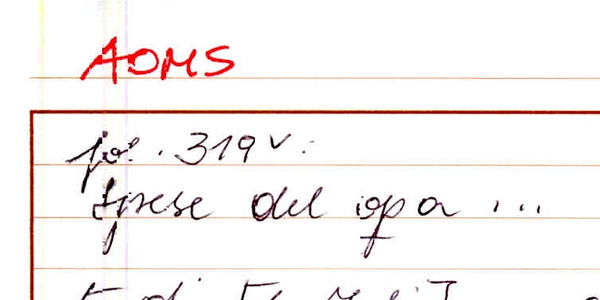 AOMS
fol. 319v.
Spese del opa ...